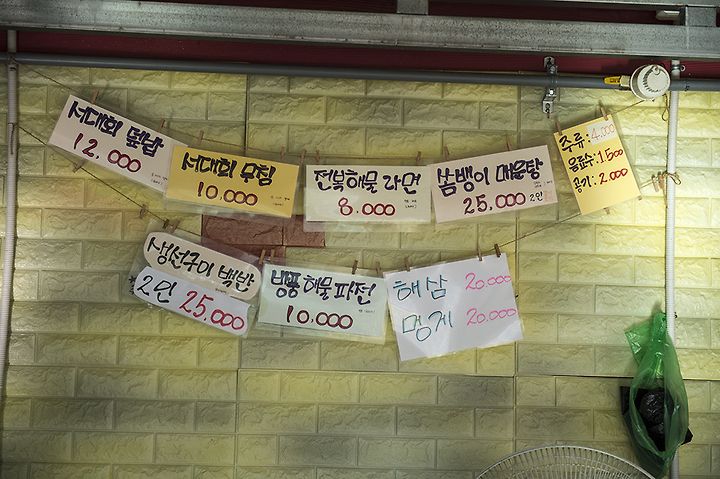 서대회 덮밥
12.000
서대회 무침
10.000
전복해물 라면
8.000
쏨뱅이 매운탕
25.000 2인
주류: 4.000
음료수: 1.500
공기: 2.000
생선구이 백반
2인 25.000
방풍 해물파전
10.000
해삼 20.000
멍게 20.000